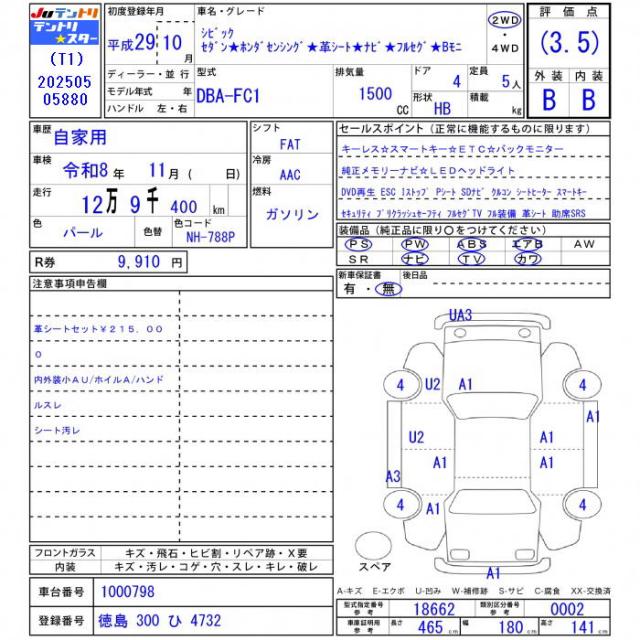 JUテントリ
テントリ
★スター
(T1)
202505
05880
初度登録年月
平成29年10月
ディーラー・並 行
モデル年式 年
ハンドル 左・右
車名・グレード
シビック
セダン★ホンダセンシング★革シート★ナビ★フルセグ★Bモニ
2WD
・
4WD
型式
DBA-FC1
排気量
1500
CC
ドア
4
形状
HB
定員
5人
積載
kg
評 価 点
(3.5)
外 装 内 装
B B
車歴
自家用
車検
令和8年 11月 ( 日)
走行
12万 9千 400 km
色
パール
色替
色コード
NH-788P
シフト
FAT
冷房
AAC
燃料
ガソリン
セールスポイント (正常に機能するものに限ります)
キーレス☆スマートキー☆ETC☆バックモニター
純正メモリーナビ☆LEDヘッドライト
DVD再生 ESC Iストップ Pシート SDナビ クルコン シートヒーター スマートキー
セキュリティ プリクラッシュセーフティ フルセグTV フル装備 革シート 助席SRS
装備品 (純正品に限り○をつけてください)
PS PW ABS エアB AW
SR ナビ TV カワ
R券 9,910 円
新車保証書
有・無
後日品
注意事項申告欄
革シートセット¥215.00
0
内外装小AU/ホイルA/ハンド
ルスレ
シート汚レ
フロントガラス キズ・飛石・ヒビ割・リペア跡・X要
内装 キズ・汚レ・コゲ・穴・スレ・キレ・破レ
車台番号 1000798
登録番号 徳島 300 ひ 4732
UA3
4 U2 A1 4
A1
U2 A1
A1 A1
A3
4 A1 4
A1
スペア
A-キズ E-エクボ U-凹み W-補修跡 S-サビ C-腐食 XX-交換済
型式指定番号
参 考
18662
類別区分番号
参 考
0002
車庫証明用
参 考
長さ 465 cm 幅 180 cm 高さ 141 cm